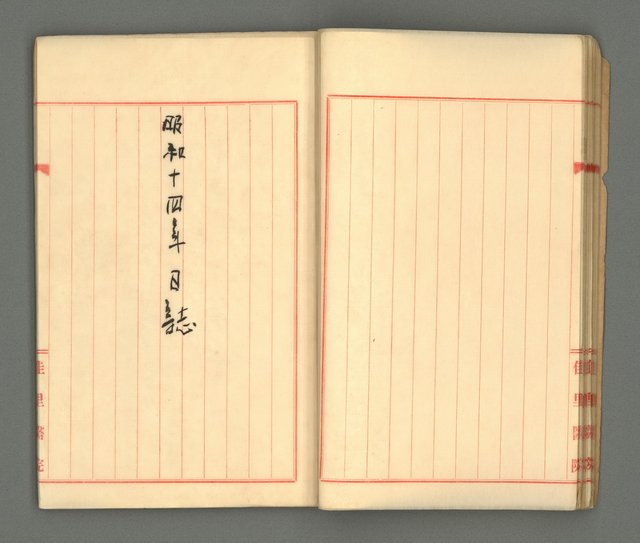 昭和十四年日誌
佳里醫院